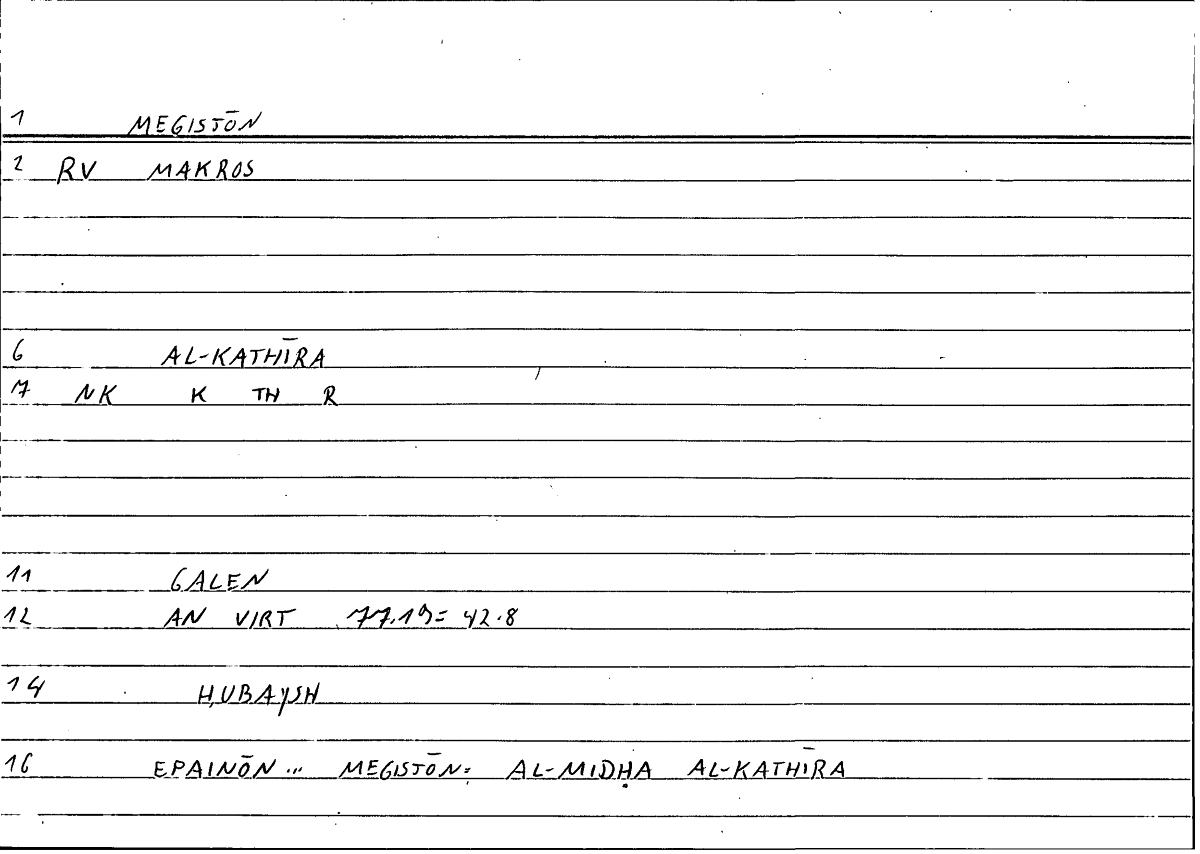 1 MEGISTŌN
2 RV MAKROS
6 AL-KATHĪRA
7 NK K TH R
11 GALEN
12 AN VIRT 77.19= 42.8
14 ḤUBAYSH
16 EPAINŌN ... MEGISTŌN: AL-MIDḤA AL-KATHĪRA